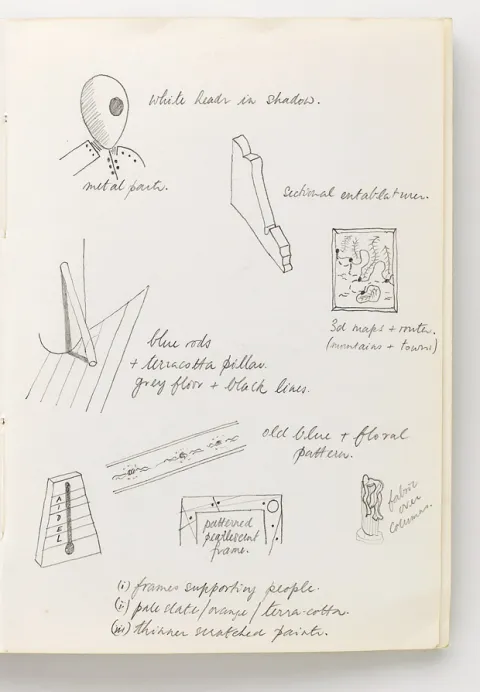 white heads in shadow.
metal parts.
sectional entablatures.
3d maps + routes.
(mountains + towns)
blue rods
+ terracotta pillar.
grey floor + black lines.
old blue + floral
pattern.
patterned
pearlescent
frame.
fabric
over
columns.
(i) frames supporting people.
(ii) pale slate/orange/terra-cotta.
(iii) thinner scratched paint.